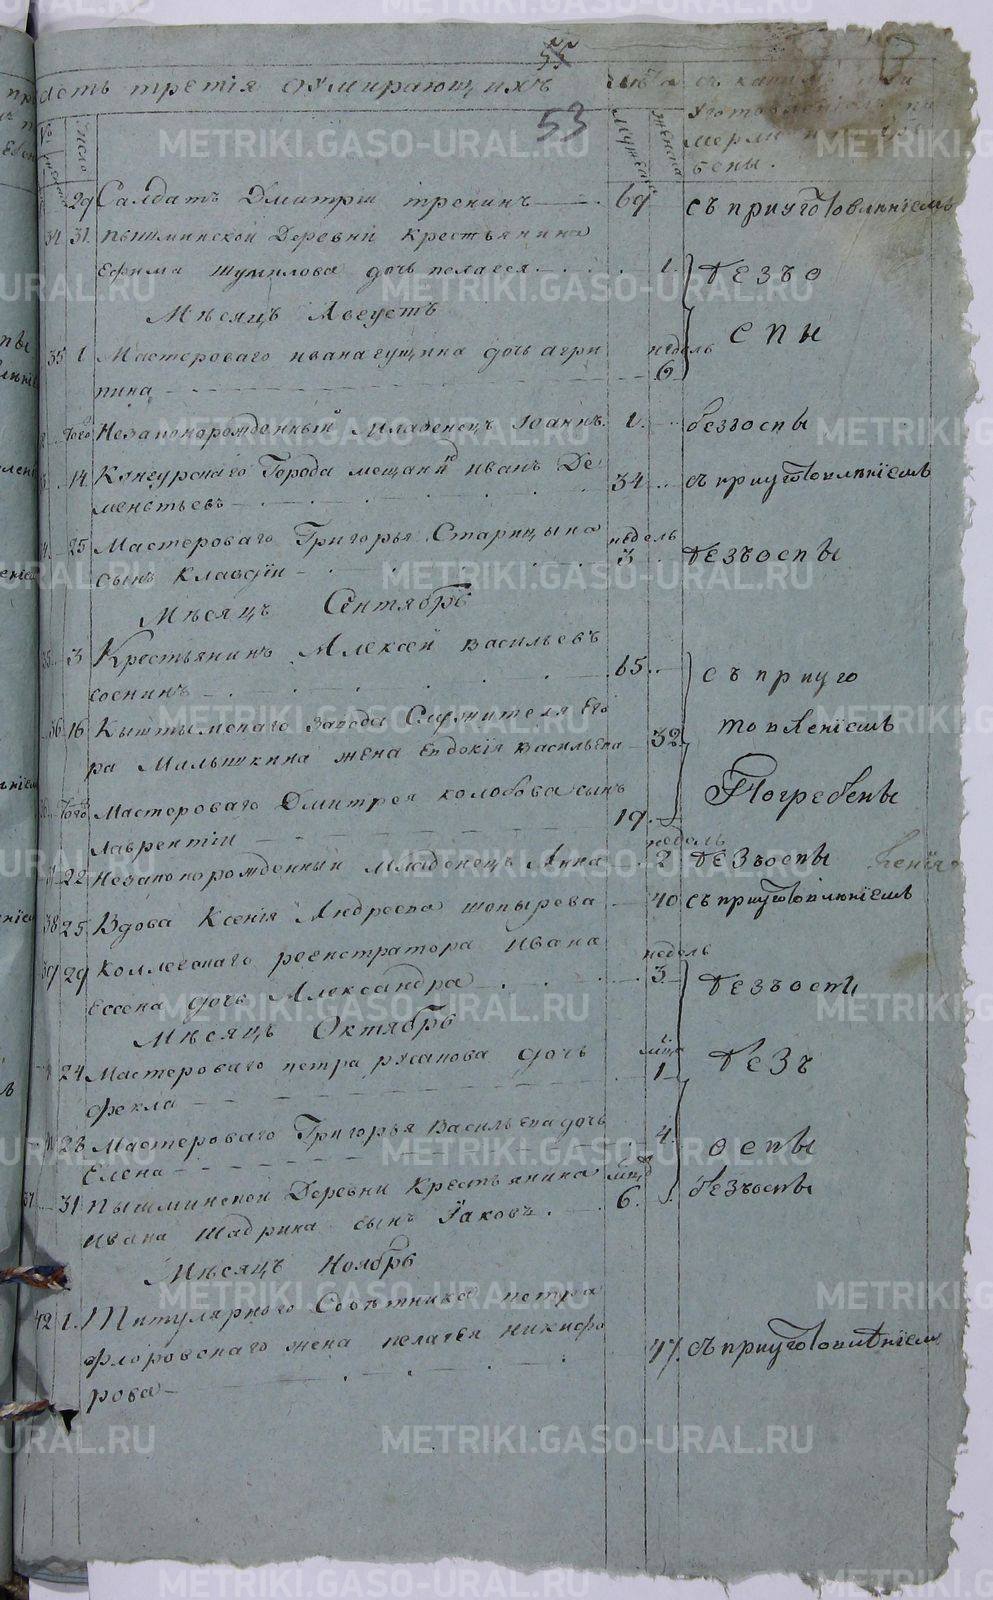 55
53
асть третія оумирающихъ
число
мужеска
женска
лѣта
съ какимъ
уготовленіемъ
мерли
бены.
29 Салдатъ Дмитрій тренинъ 69 съ приуготовлѣніемъ
34 31 пышминской Деревни крестьянина
Ефима Шумилова дочь пелагея 1. безъо
Мѣсяцъ Августъ
спы
35 1 Мастероваго ивана гущина дочь агри недѣль
пина 6
Того Незаконорожденный Младенецъ Іоаннъ 1. безъоспы
14 Кунгурскаго Города мещанинъ иванъ Де 34 съ приуготовлѣніемъ
ментьевъ
25 Мастероваго Григорья Старицына недель
сынъ Клавдіи 3 безъоспы
Мѣсяцъ Сентябрь
35 3 Крестьянинъ Алексѣй васильевъ
соснинъ 65. съ приуго
36 16 Кыштымскаго Завода Служителя Его товленіемъ
ра Малышкина жена Евдокія васильева 32
Погребены
Того Мастероваго Дмитрея колобова сынъ
лаврентіи 19. недель
22 Незаконорожденный Младенецъ Анна 2 безъоспы
38 25 Вдова Ксенія Андреева шопырева 40 съ приуготовлѣніемъ
39 29 коллескаго регистратора ивана недель
Ессена дочь Александра 3 безъоспы
Мѣсяцъ Октябрь
24 Мастероваго петра русанова дочь мцъ
фекла 1 безъ
23 Мастероваго Григорья васильева дочь 4.
Елена оспы
37 31 пышминской Деревни крестьянина мцъ
ивана шадрина сынъ Іаковъ. 6. безъоспы
Мѣсяцъ Ноябрь
42 1. Титулярного Совѣтника петра
флоровскаго жена пелагея никифо 47. съ приуготовлѣніем
рова
METRIKI.GASO-URAL.RU